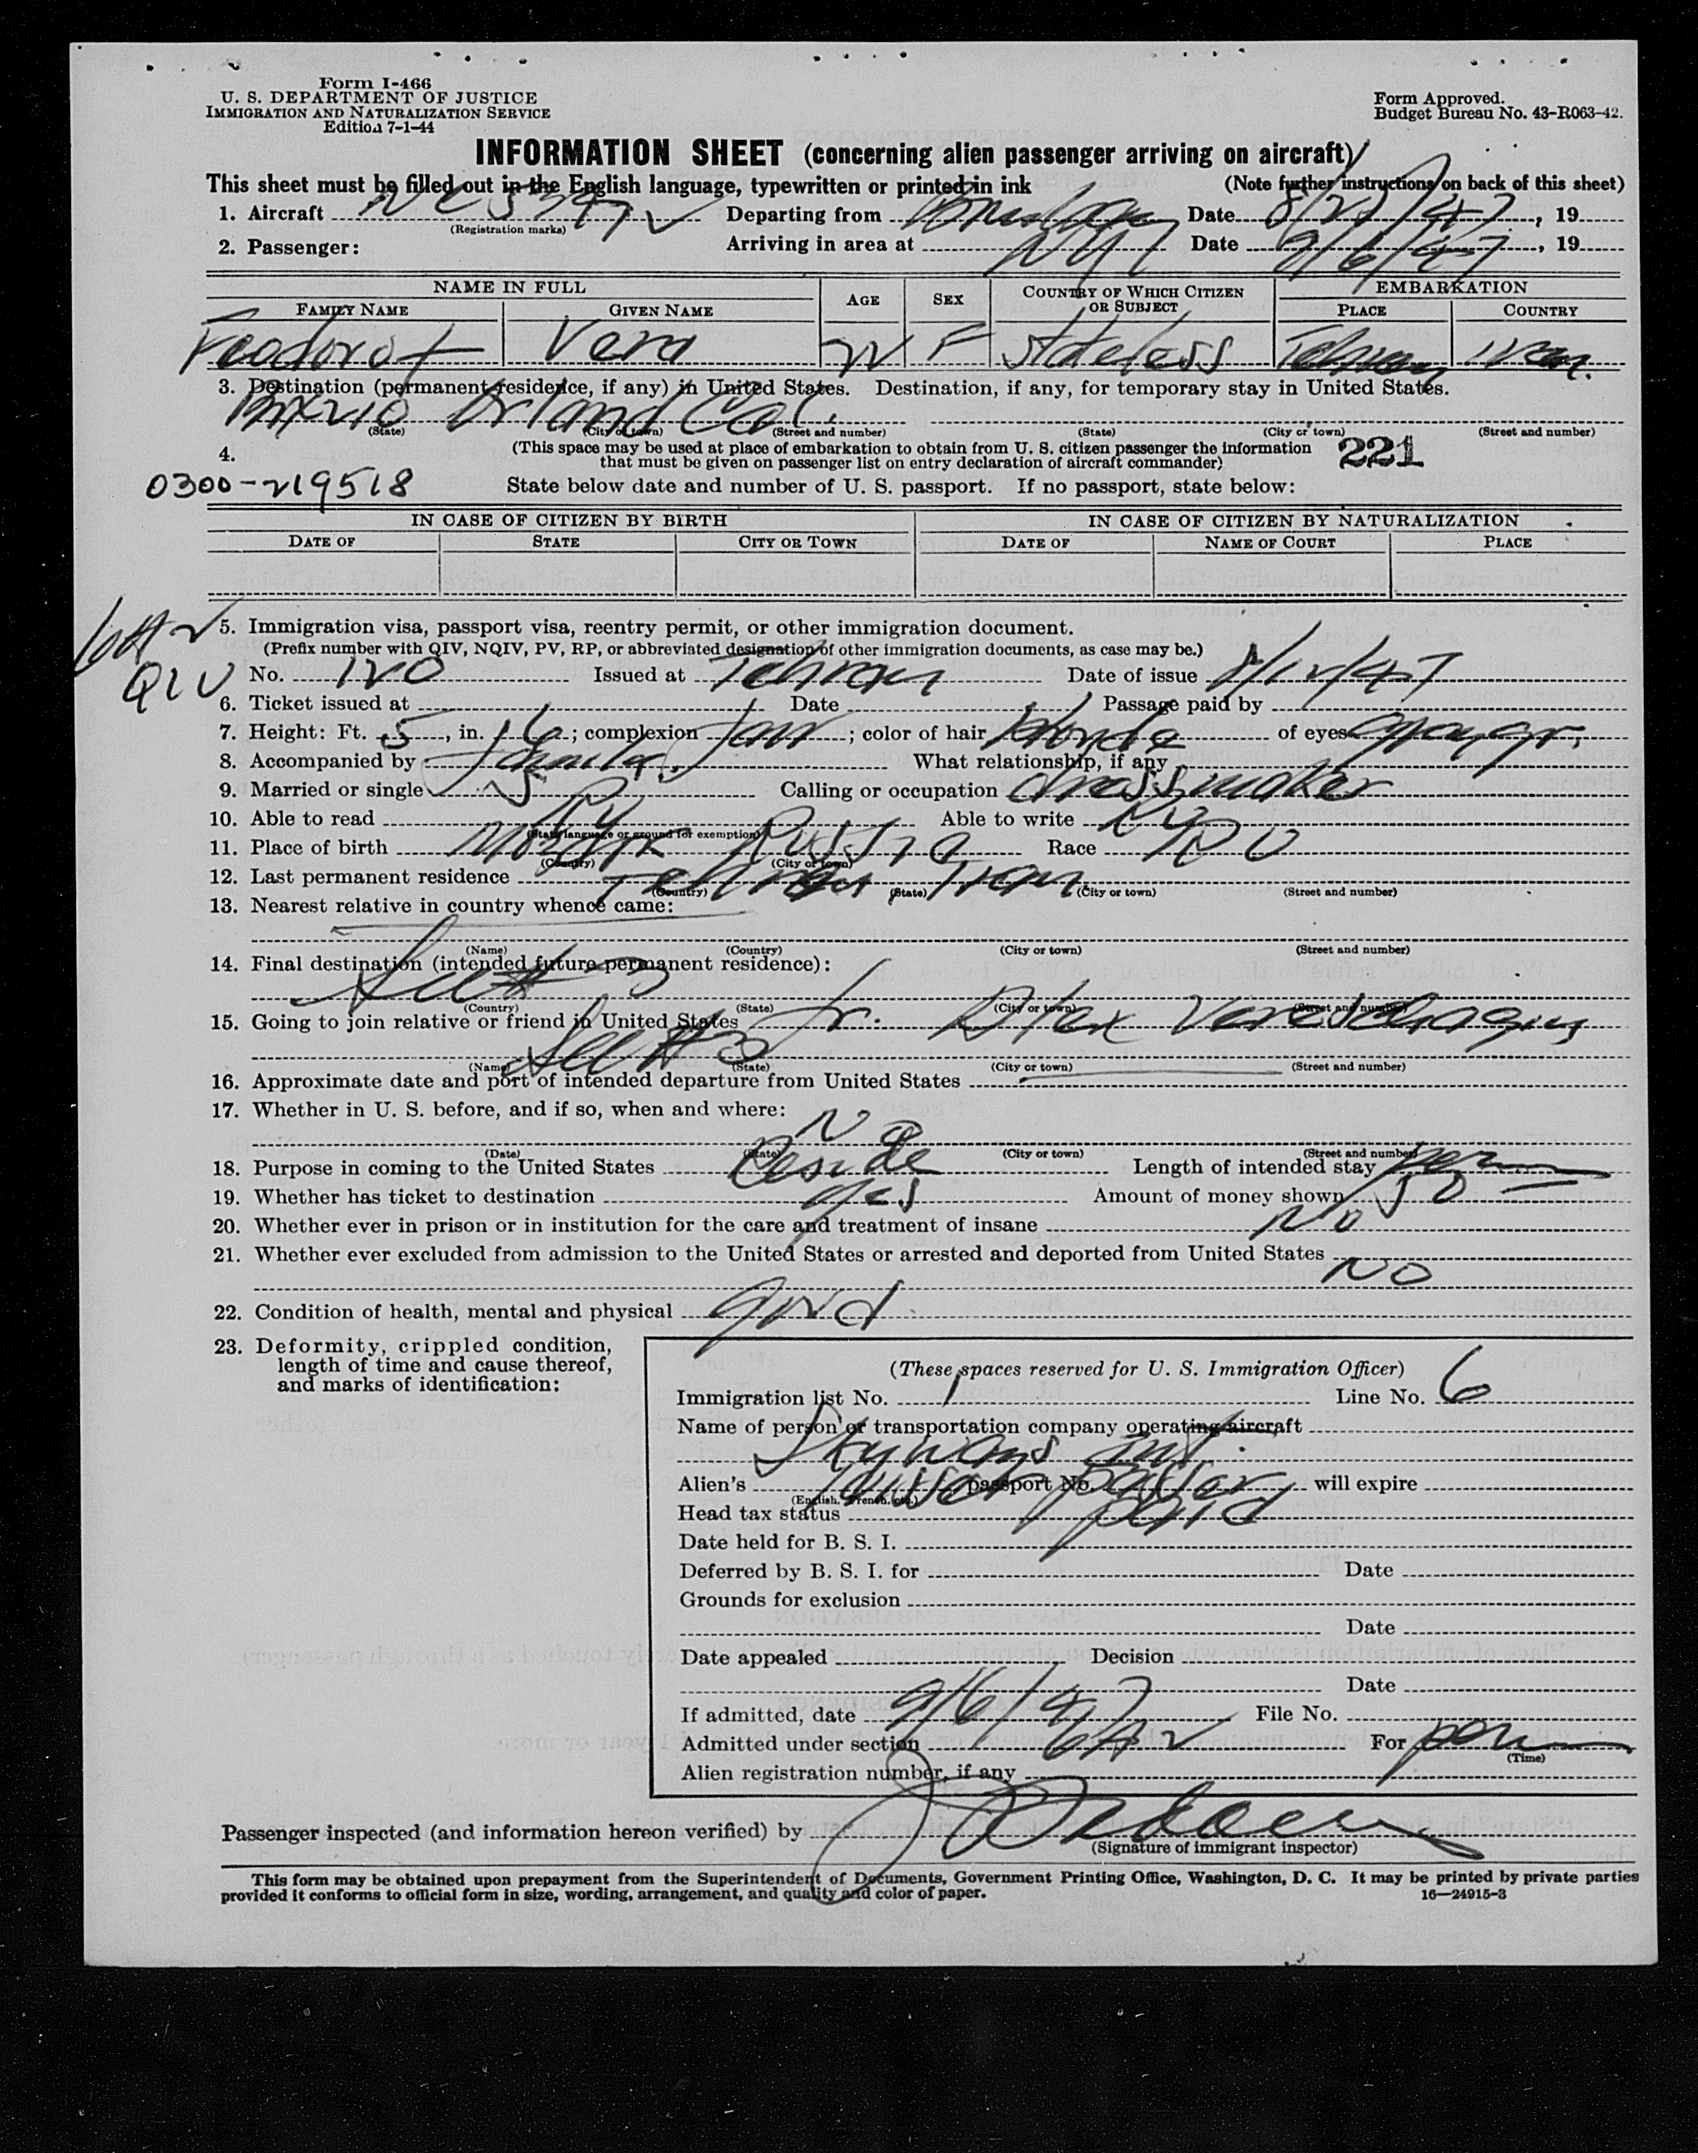 Form I-466
U. S. DEPARTMENT OF JUSTICE
IMMIGRATION AND NATURALIZATION SERVICE
Edition 7-1-44
Form Approved.
Budget Bureau No. 43-R063-42.
INFORMATION SHEET (concerning alien passenger arriving on aircraft)
This sheet must be filled out in the English language, typewritten or printed in ink (Note further instructions on back of this sheet)
1. Aircraft Departing from Date 8/ /47, 19
(Registration marks)
2. Passenger: Arriving in area at NY Date 9/6/47, 19
NAME IN FULL AGE SEX COUNTRY OF WHICH CITIZEN OR SUBJECT EMBARKATION
FAMILY NAME GIVEN NAME PLACE COUNTRY
Feodorof Vera F Stateless Tehran Iran.
3. Destination (permanent residence, if any) in United States. Destination, if any, for temporary stay in United States.
Orland Cal.
(State) (City or town) (Street and number) (State) (City or town) (Street and number)
4. (This space may be used at place of embarkation to obtain from U. S. citizen passenger the information
that must be given on passenger list on entry declaration of aircraft commander) 221
0300-219518 State below date and number of U. S. passport. If no passport, state below:
IN CASE OF CITIZEN BY BIRTH IN CASE OF CITIZEN BY NATURALIZATION
DATE OF STATE CITY OR TOWN DATE OF NAME OF COURT PLACE
6A2 5. Immigration visa, passport visa, reentry permit, or other immigration document.
(Prefix number with QIV, NQIV, PV, RP, or abbreviated designation of other immigration documents, as case may be.)
QIV No. 120 Issued at Tehran Date of issue 8/12/47
6. Ticket issued at Date Passage paid by
7. Height: Ft. 5, in. 6; complexion fair; color of hair blonde of eyes gray gr.
8. Accompanied by family What relationship, if any
9. Married or single S Calling or occupation dressmaker
10. Able to read Ru Able to write Ru
(State language or ground for exemption)
11. Place of birth Russia Race RU
(Country) (City or town)
12. Last permanent residence Tehran Iran
(Country) (State) (City or town) (Street and number)
13. Nearest relative in country whence came:
(Name) (Country) (City or town) (Street and number)
14. Final destination (intended future permanent residence):
See #3
(Country) (State) (City or town) (Street and number)
15. Going to join relative or friend in United States fr. Alex Vereschagin
See #3
(Name) (State) (City or town) (Street and number)
16. Approximate date and port of intended departure from United States
17. Whether in U. S. before, and if so, when and where:
No
(Date) (State) (City or town) (Street and number)
18. Purpose in coming to the United States Reside Length of intended stay perm
19. Whether has ticket to destination yes Amount of money shown 50
20. Whether ever in prison or in institution for the care and treatment of insane No
21. Whether ever excluded from admission to the United States or arrested and deported from United States
NO
22. Condition of health, mental and physical good
23. Deformity, crippled condition,
length of time and cause thereof,
and marks of identification:
(These spaces reserved for U. S. Immigration Officer)
Immigration list No. 1 Line No. 6
Name of person or transportation company operating aircraft
Skyways Int.
Alien's passport No. will expire
(English, French, etc.)
Head tax status paid
Date held for B. S. I.
Deferred by B. S. I. for Date
Grounds for exclusion
Date
Date appealed Decision
Date
If admitted, date 9/6/47 File No.
Admitted under section 6A2 For perm
(Time)
Alien registration number, if any
Passenger inspected (and information hereon verified) by
(Signature of immigrant inspector)
This form may be obtained upon prepayment from the Superintendent of Documents, Government Printing Office, Washington, D. C. It may be printed by private parties
provided it conforms to official form in size, wording, arrangement, and quality and color of paper. 16—24915-3